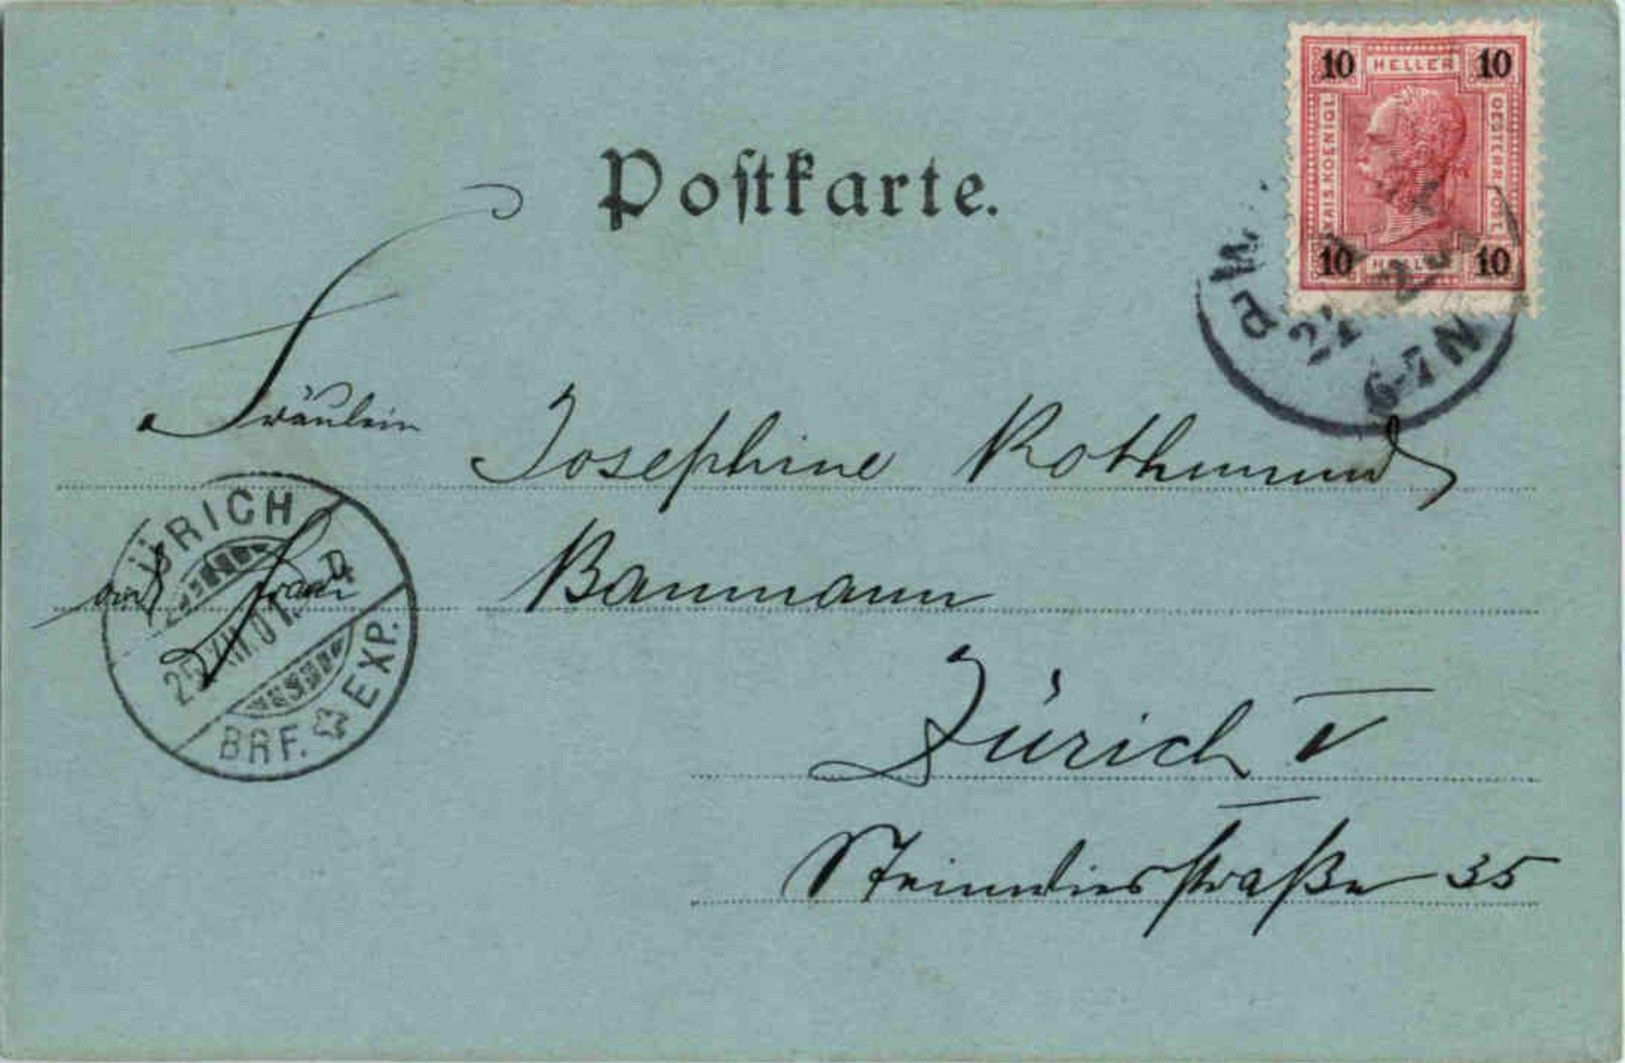 Postkarte.
10 HELLER 10
KAIS. KOENIGL.
OESTERR. POST.
10 HELLER 10
24
6-7N
Fräulein Josephine Rothmund
Baumann
Zürich V
straße 35
ZÜRICH
25.VII.01.
BRF. EXP.